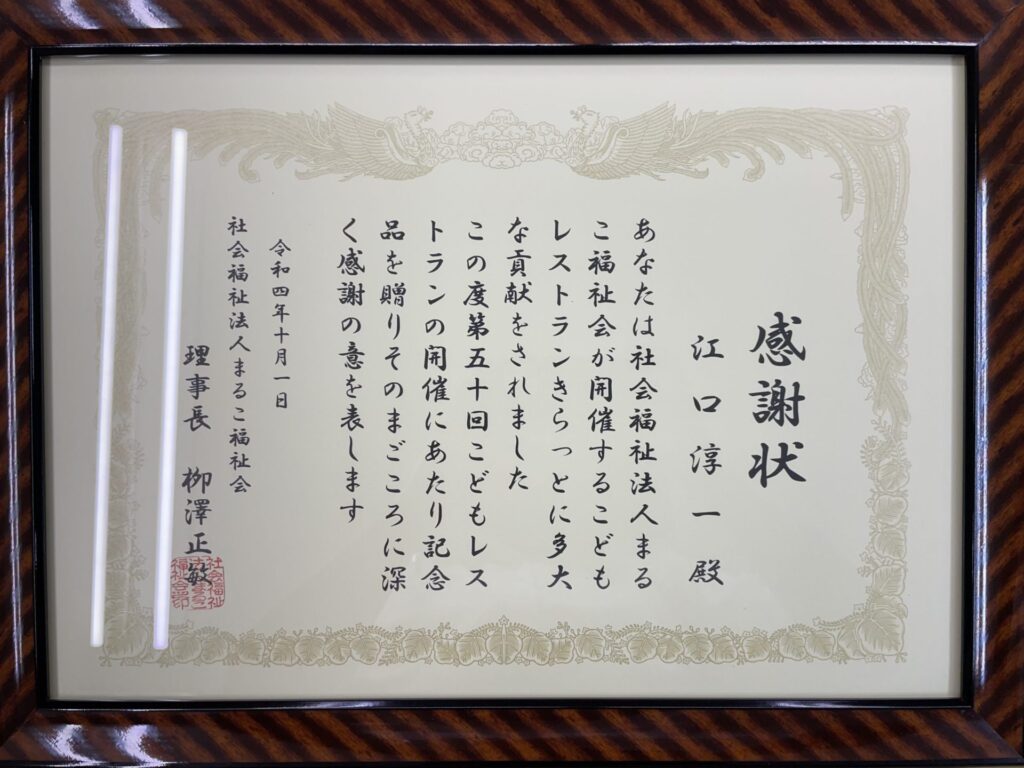 感謝状
江口淳一殿
あなたは社会福祉法人まる
こ福祉会が開催するこども
レストランきらっとに多大
な貢献をされました
この度第五十回こどもレス
トランの開催にあたり記念
品を贈りそのまごころに深
く感謝の意を表します
令和四年十月一日
社会福祉法人まるこ福祉会
理事長 柳澤正敏